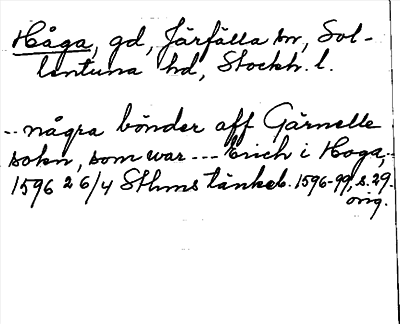 Håga, gd, Järfälla sn, Sol-
lentuna hd, Stockh. l.
-- några bönder aff Gärnelle
sokn, som war --- Erich i Hoga,--
1596 26/4 Sthms tänkeb. 1596-99, s. 29.
orig.